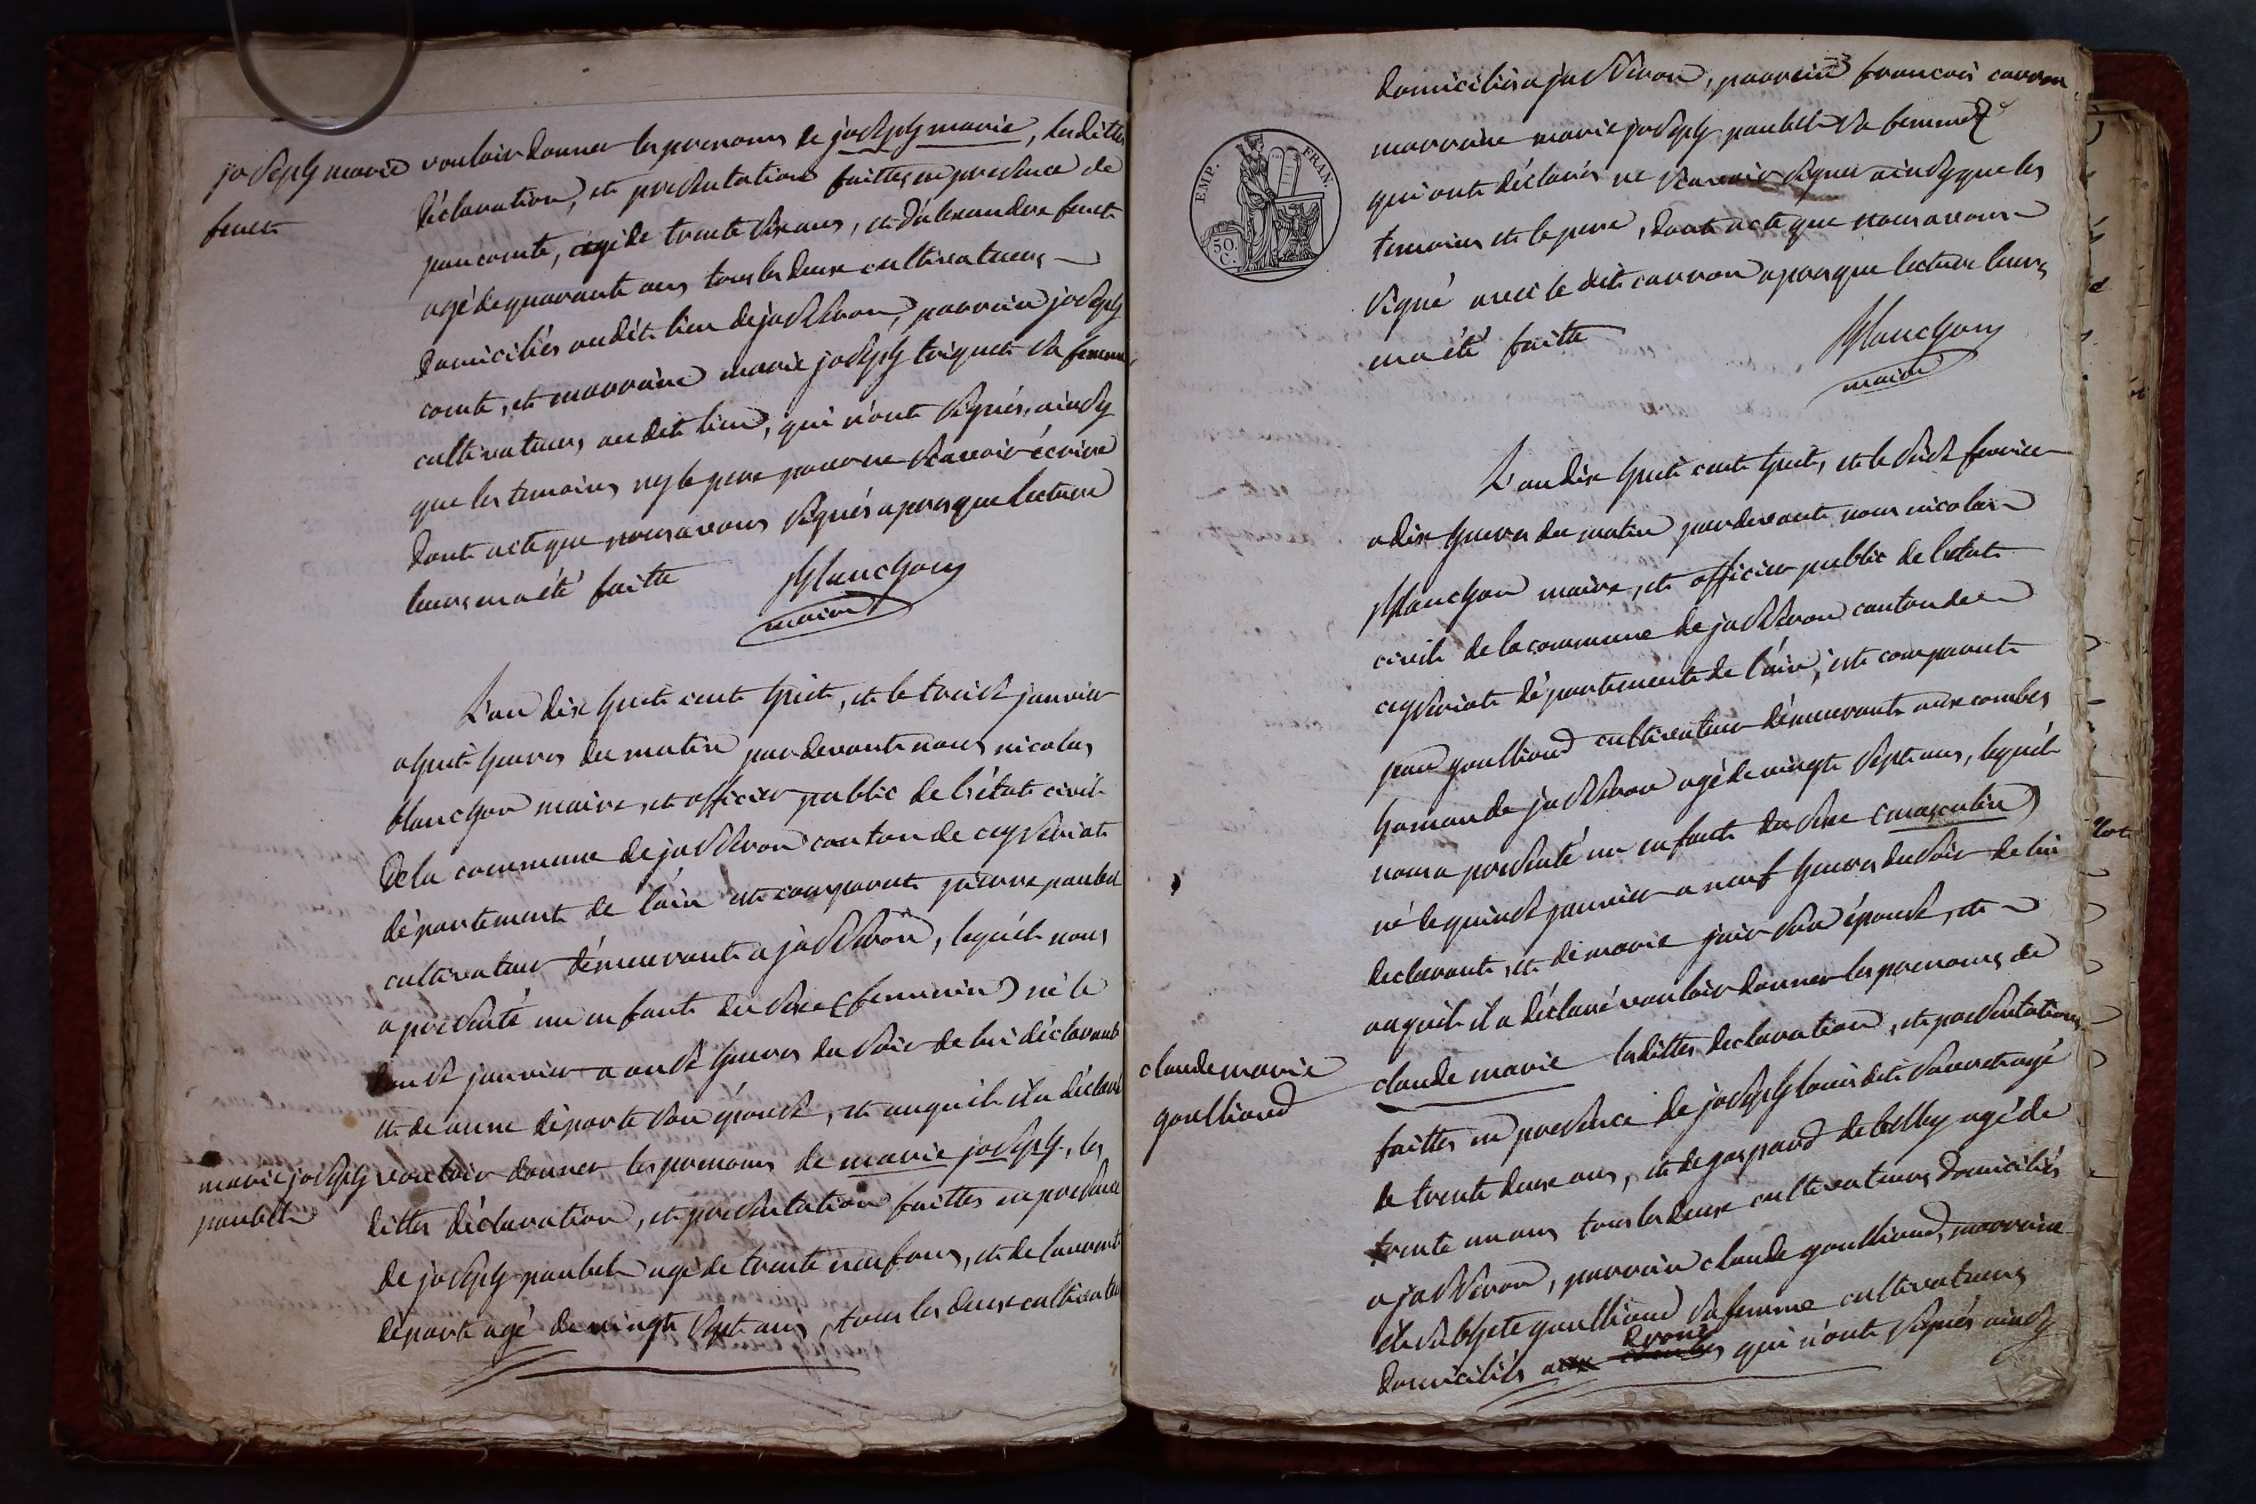 joseph marie
feuet
vouloir donner les prenoms de joseph marie, lesdittes
déclaration, et presentation faittes en presence de
jean comte, agé de trente six ans, et d'alexandre feuet
agé de quarante ans tous les deux cultivateurs
domiciliés au dit lieu de jasseron, parrain joseph
comte, et marraine marie joseph triquet sa femme
cultivateurs au dit lieu, qui n'ont signés, ainsy
que les temoins, ny le pere pour ne scavoir écrire
dont acte que nous avons signés apres que lecture
leurs en a été faitte
Blanchon
maire
L'an dix huit cent huit, et le treize janvier
a huit heures du matin pardevant nous nicolas
blanchon maire, et officier public de l'état civil
de la commune de jasseron canton de ceyseriat
département de l'ain est comparut pierre paubel
cultivateur démeurant a jasseron, lequél nous
a presenté un enfant du sexe (feminin) né le
onze janvier a onze heures du soir de lui déclarant
et de anne déporte son épouse, et auquél il a déclaré
marie joseph
paubel
vouloir donner les prenoms de marie joseph, les
dittes déclaration, et presentation faittes en presence
de joseph paubel agé de trente neuf ans, et de laurent
déporte agé de vingt sept ans, tous les deux cultivateurs
EMP. FRAN.
50. C.
domiciliés a jasseron, parrain francois carron
marraine marie joseph paubel sa femme
qui ont déclarés ne scavoir signer ainsy que les
temoins et le pere, dont acte que nous avons
signé avec le dit carron apres que lecture leurs
en a été faitte
Blanchon
maire
L'an dix huit cent huit, et le seize fevrier
a dix heures du matin pardevant nous nicolas
Blanchon maire, et officier public de l'état
civil de la commune de jasseron canton de
ceyseriat département de l'ain, est comparut
jean goulliand cultivateur démeurant aux combes
hameau de jasseron agé de vingt sept ans, lequél
nous a presenté un enfant du sexe (masculin)
né le quinze janvier a neuf heures du soir de lui
declarant, et de marie jair son épouse, et
auquél il a déclaré vouloir donner les prenoms de
claude marie
goulliand
claude marie lesdittes declaration, et presentation
faittes en presence de joseph louis dit sauvet agé
de trente deux ans, et de gaspard debelley agé de
trente un ans tous les deux cultivateurs domiciliés
a jasseron, parrain claude goulliand, marraine
elisabhete goulliand sa femme cultivateurs
domiciliés aux combes drom qui n'ont signés ainsy